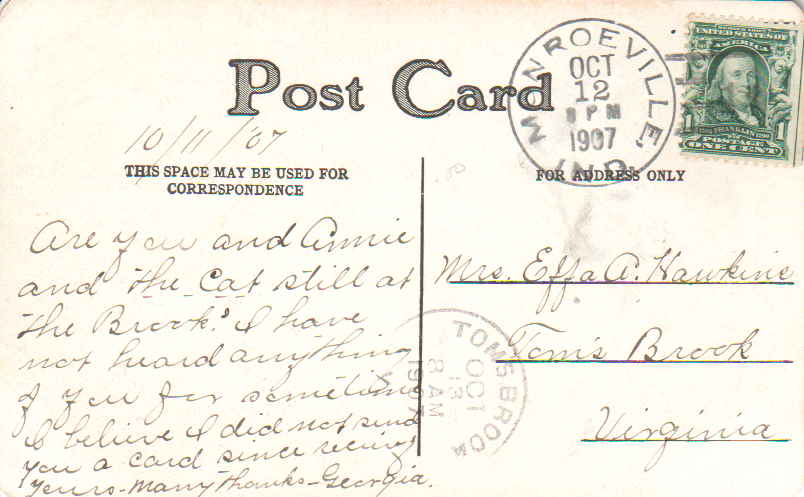 Post Card
10/11/'07
THIS SPACE MAY BE USED FOR
CORRESPONDENCE
Are you and Annie
and the Cat still at
the Brook? I have
not heard anything
of you for sometime
I believe I did not send
you a card since receiving
yours - Many thanks - Georgia.
MONROEVILLE,
OCT
12
8 PM
1907
IND.
UNITED STATES OF
AMERICA
1 FRANKLIN 1
POSTAGE
ONE CENT
FOR ADDRESS ONLY
Mrs. Effa A. Hawkins
Tom's Brook
Virginia
TOMSBROOK
OCT
13
8 AM
1907